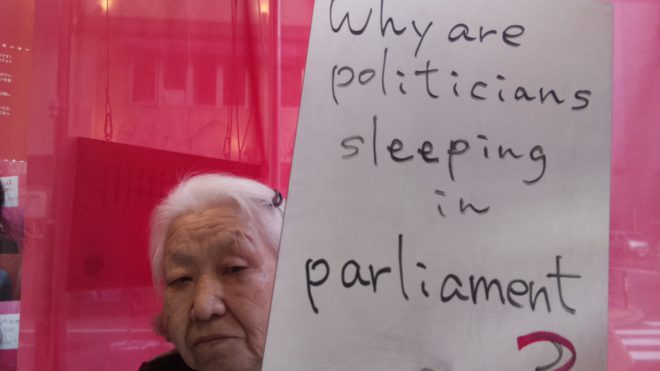 Why are
politicians
sleeping
in
parliament
?